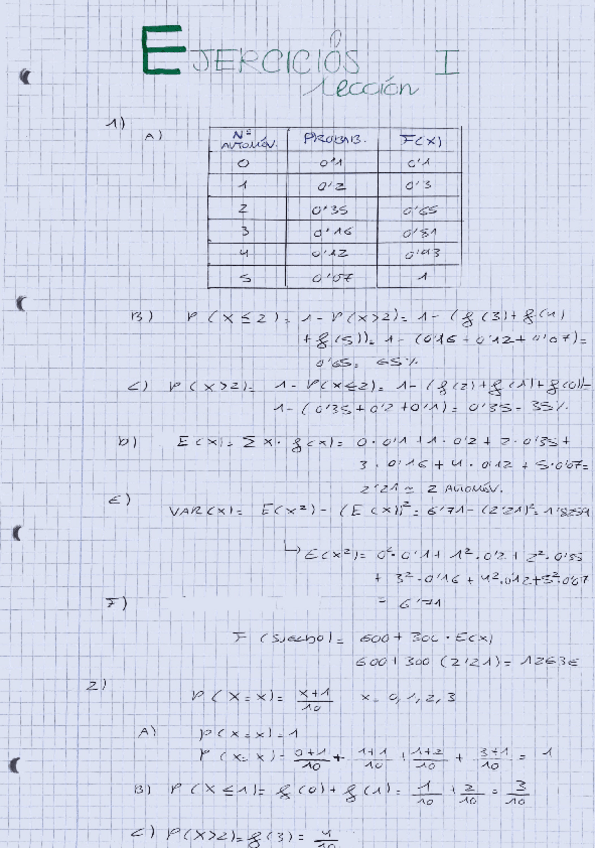 EJERCICIOS I
Lección
1)
A)
Nº AUTOMÓV. PROBAB. F(X)
0 0'1 0'1
1 0'2 0'3
2 0'35 0'65
3 0'16 0'81
4 0'12 0'93
5 0'07 1
B) P(X≤2)= 1-P(X>2)= 1-(f(3)+f(4)
+f(5))= 1-(0'16+0'12+0'07)=
0'65= 65%
C) P(X>2)= 1-P(X≤2)= 1-(f(2)+f(1)+f(0))=
1-(0'35+0'2+0'1)= 0'35= 35%
D) E(X)= Σ x·f(x)= 0·0'1+1·0'2+2·0'35+
3·0'16+4·0'12+5·0'07=
2'21 ≈ 2 AUTOMÓV.
E)
VAR(X)= E(X²)-(E(X))²= 6'71-(2'21)²= 1'8259
E(X²)= 0²·0'1+1²·0'2+2²·0'35
+ 3²·0'16+4²·0'12+5²·0'07
= 6'71
F)
F(sueldo)= 600+300·E(X)
600+300(2'21)= 1263€
2)
P(X=x)= x+1/10 x=0,1,2,3
A) P(X=x)=1
P(X=x)= 0+1/10 + 1+1/10 + 1+2/10 + 3+1/10 = 1
B) P(X≤1)= f(0)+f(1)= 1/10 + 2/10 = 3/10
C) P(X>2)=f(3)= 4/10